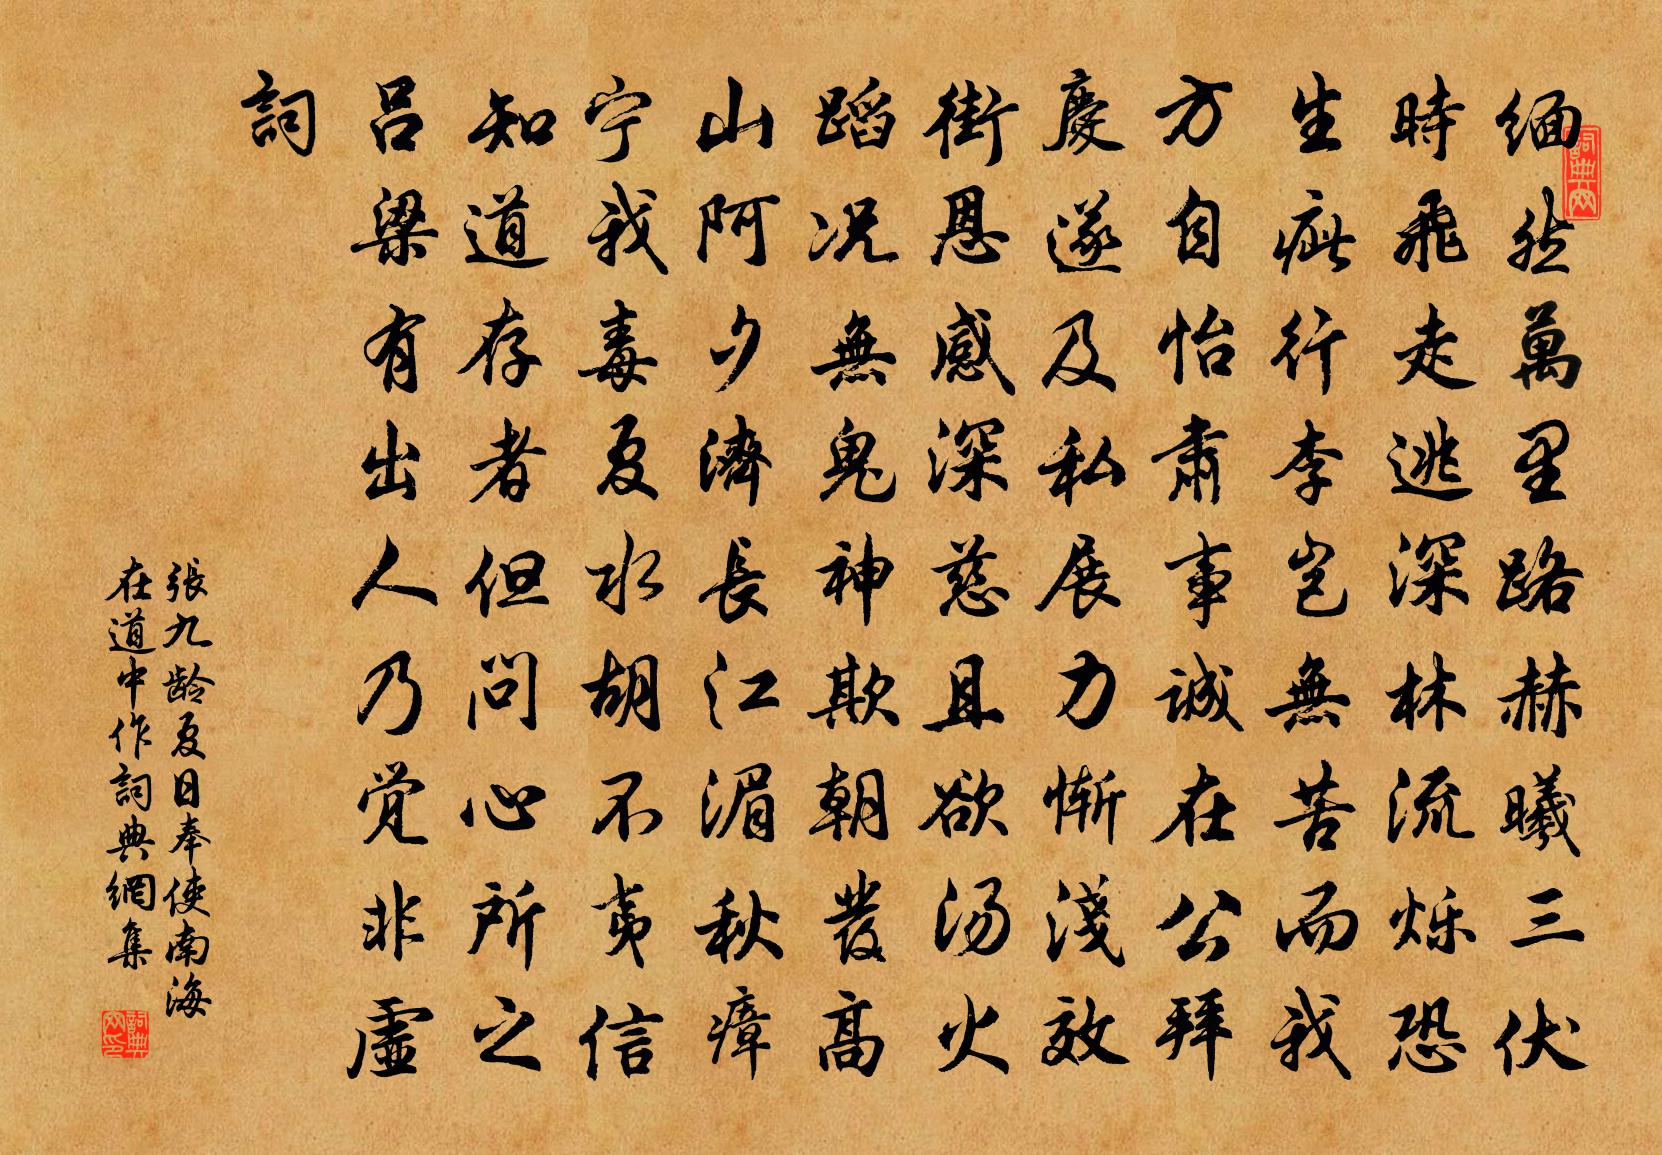 缅然萬里路赫曦三伏
時飛走逃深林流烁恐
生疵行李岂無苦而我
方自怡肃事诚在公拜
慶遂及私展力惭淺效
衔恩感深慈且欲汤火
蹈况無鬼神欺朝發高
山阿夕濟長江湄秋瘴
宁我毒夏水胡不夷信
知道存者但问心所之
吕梁有出人乃觉非虚
詞
張九龄夏日奉使南海
在道中作詞典網集
詞典网
詞典网印